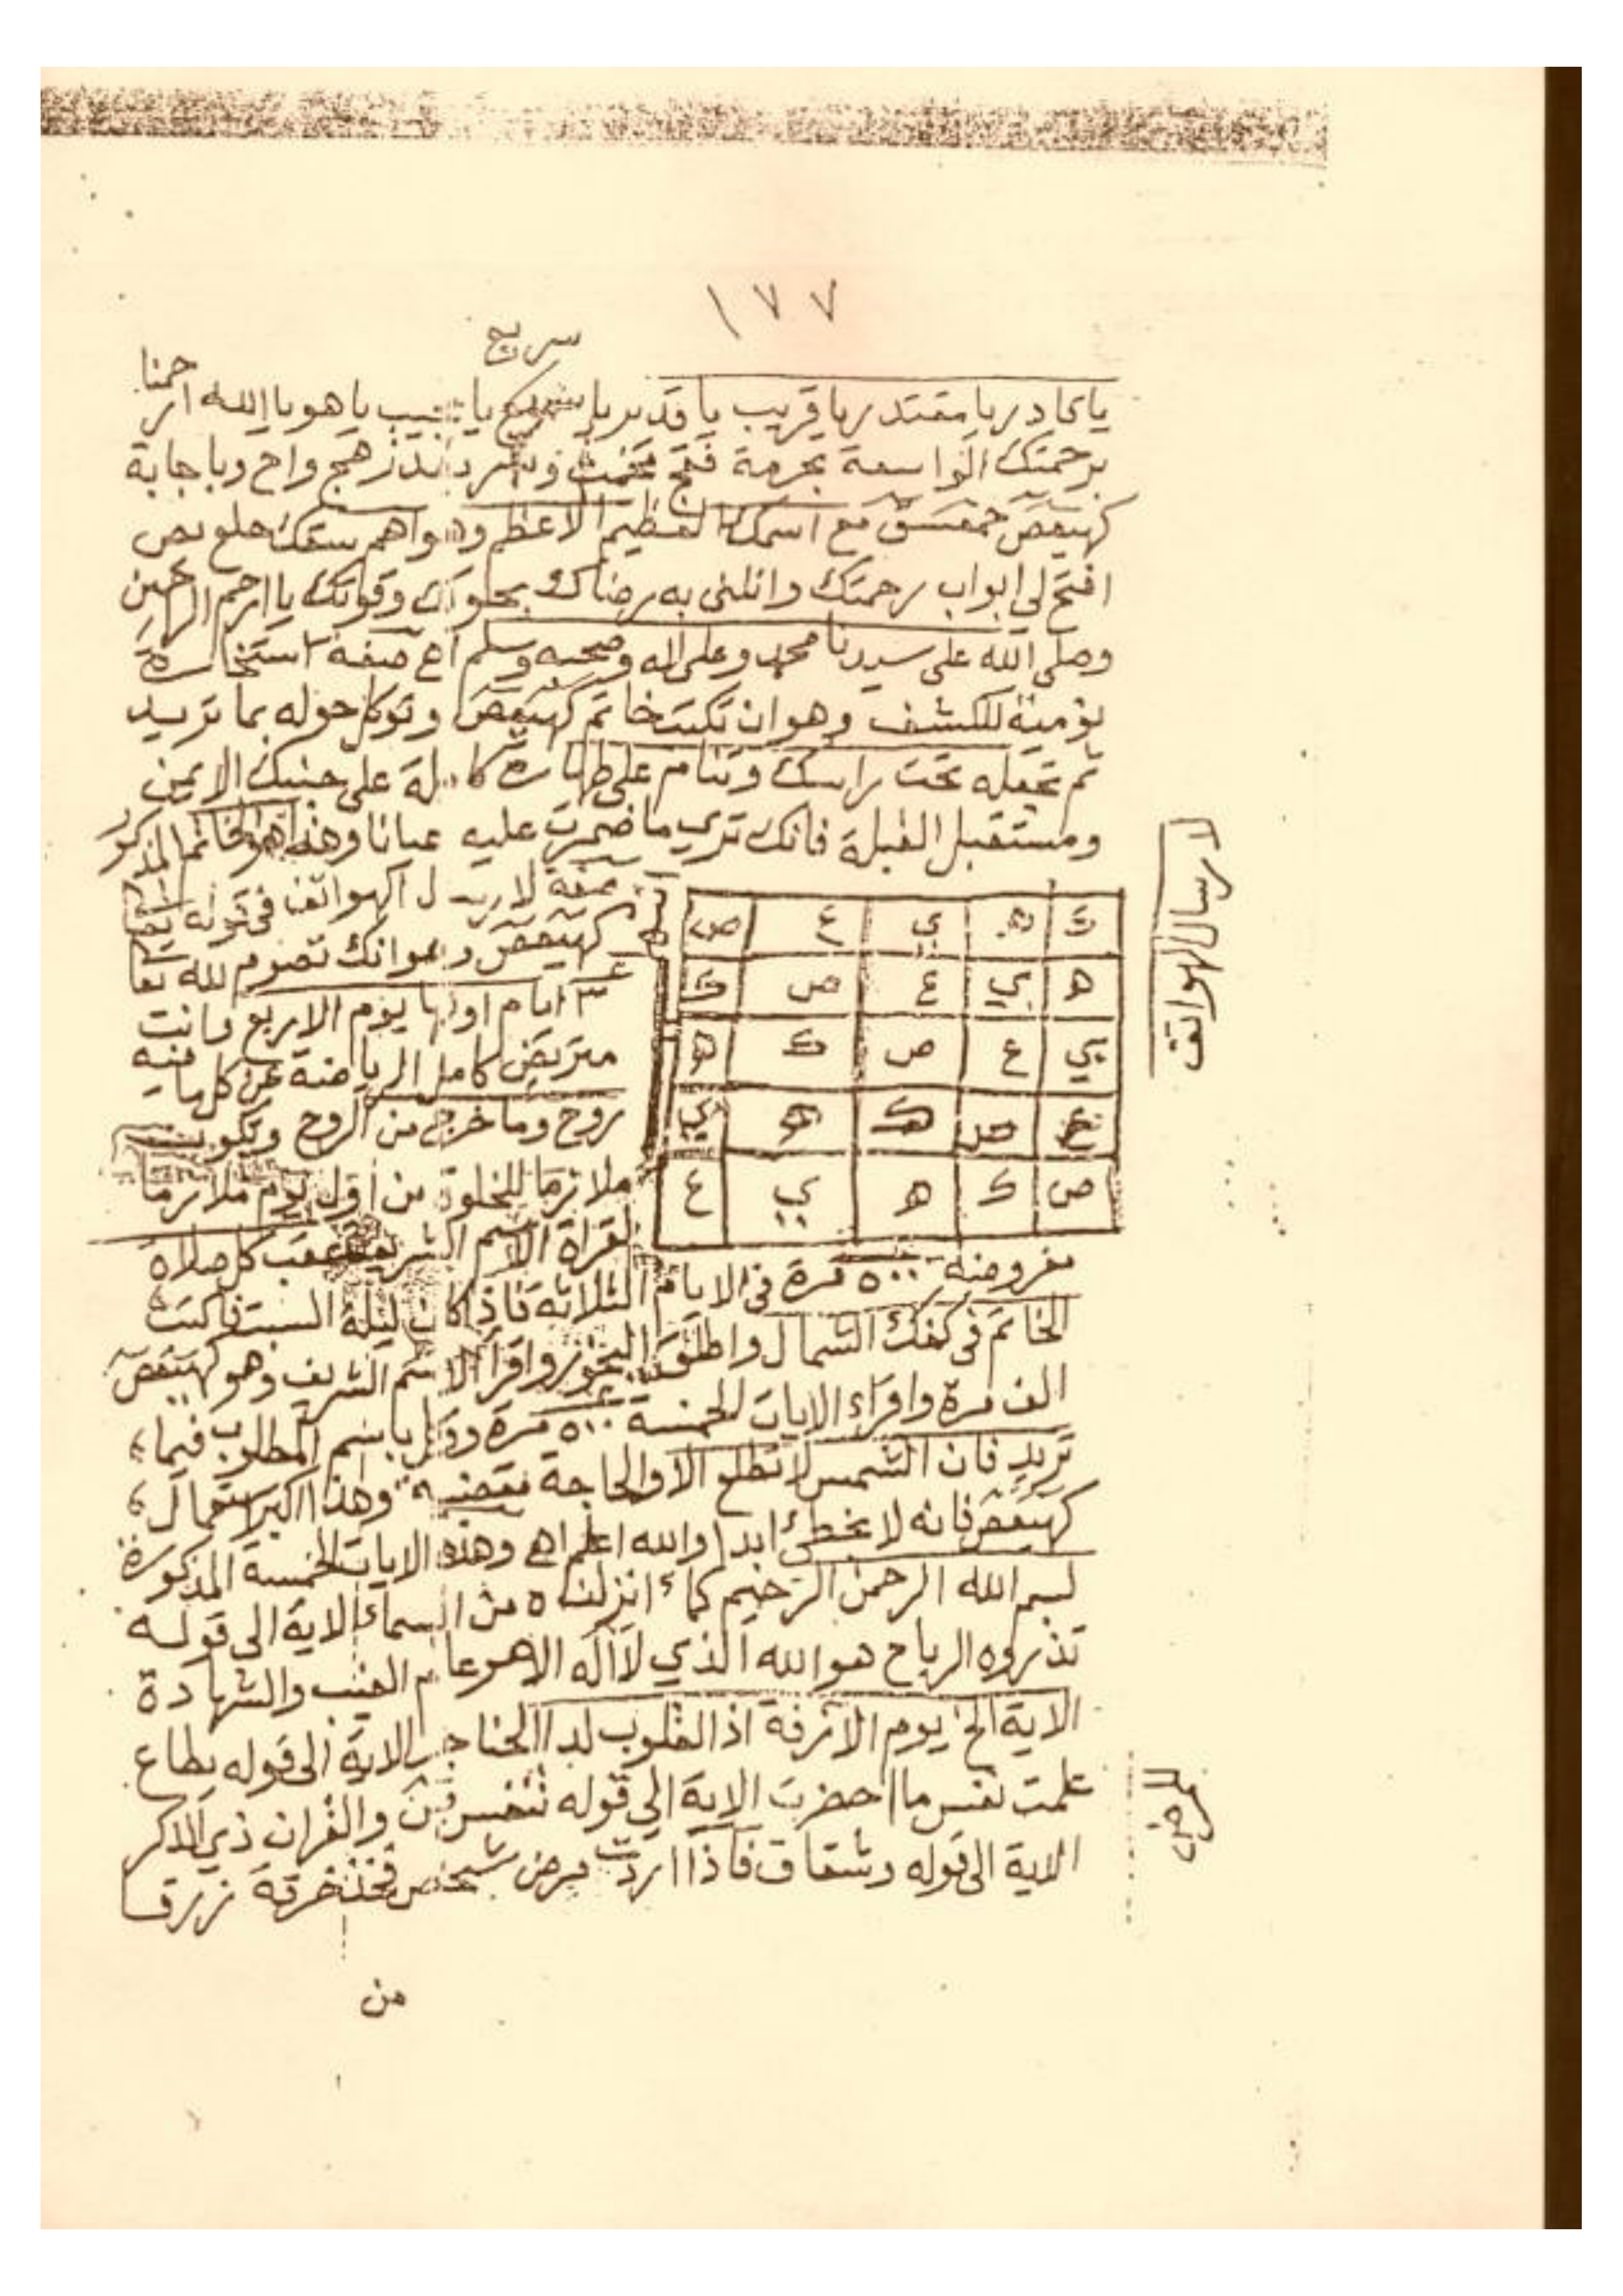 ١٧٧
سريع
يا قادر يا مقتدر يا قريب يا قدير يا سريع يا مجيب يا هو يا الله ارحمنا
برحمتك الواسعة بحرمة فقج مخمت وباجابة
كهيعص حمعسق مع اسمك العظيم الاعظم وهو اهم سقك حلع يص
افتح لي ابواب رحمتك وانلني به رضاك بحلولك وقوتك يا ارحم الراحمين
وصلى الله على سيدنا محمد وعلى اله وصحبه وسلم اه صفة استخارة
نومية للكشف وهو ان تكتب خاتم كهيعص وتوكل حوله بما تريد
ثم تجعله تحت راسك وتنام على طهارة كاملة على جنبك الايمن
ومستقبل القبلة فانك تري ما ضمرت عليه عيانا وهذا هو الخاتم المذكور
لارسال الهواتف
ك ه ي ع ص
ه ي ع ص ك
ي ع ص ك ه
ع ص ك ه ي
ص ك ه ي ع
صفة لارسال الهواتف في قوله تعا
كهيعص وهو انك تصوم لله تعا
٣ ايام اولها يوم الاربع وانت
متريض كامل الرياضة عن كل ما فيه
روح وما خرج من الروح وتكون
ملازما للخلوة من اول يوم ملازما
لقراة الاسم الشريف عقب كل صلاة
مفروضة ٥٠٠ مرة في الايام الثلاثة فاذا كان ليلة السبت فاكتب
الخاتم في كفك الشمال واطلق البخور واقرا الاسم الشريف وهو كهيعص
الف مرة واقراء الايات الخمسة ٥٠٠ مرة وقل باسم المطلوب فيما
تريد فان الشمس لا تطلع الا والحاجة مقضية وهذا اكبر استعمال
كهيعص فانه لا يخطئ ابدا والله اعلم اه وهذه الايات الخمسة المذكورة
بسم الله الرحمن الرحيم كماء انزلناه من السماء الاية الى قوله
تذروه الرياح هو الله الذي لا اله الا هو عالم الغيب والشهادة
الاية الخ يوم الازفة اذ القلوب لدا الحناجر الاية الى قوله يطاع
علمت نفس ما احضرت الاية الى قوله تنفس ص والقران ذي الذكر
الاية الى قوله وشقاق فاذا اردت مرض شخص فخذ خرقة زرقا
لامرض
من